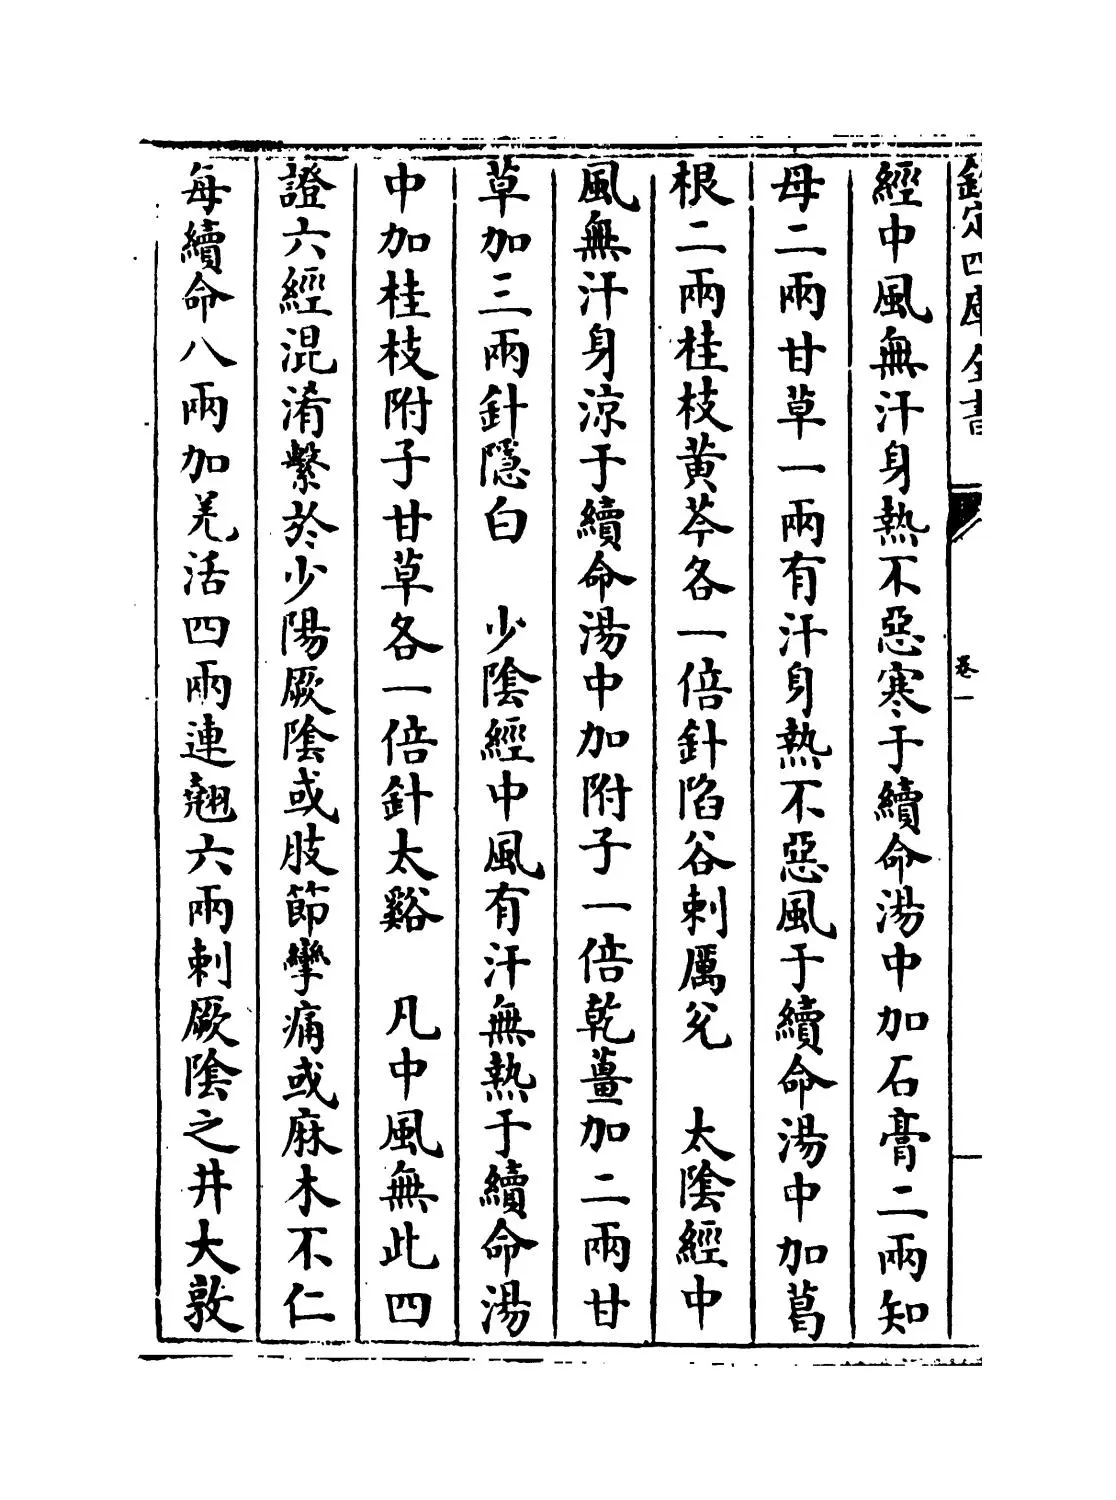 欽定四庫全書
卷一
經中風無汗身熱不惡寒于續命湯中加石膏二兩知
母二兩甘草一兩有汗身熱不惡風于續命湯中加葛
根二兩桂枝黃芩各一倍針陷谷刺厲兊　太陰經中
風無汗身涼于續命湯中加附子一倍乾薑加二兩甘
草加三兩針隱白　少陰經中風有汗無熱于續命湯
中加桂枝附子甘草各一倍針太谿　凡中風無此四
證六經混淆繫於少陽厥陰或肢節攣痛或麻木不仁
每續命八兩加羌活四兩連翹六兩刺厥陰之井大敦